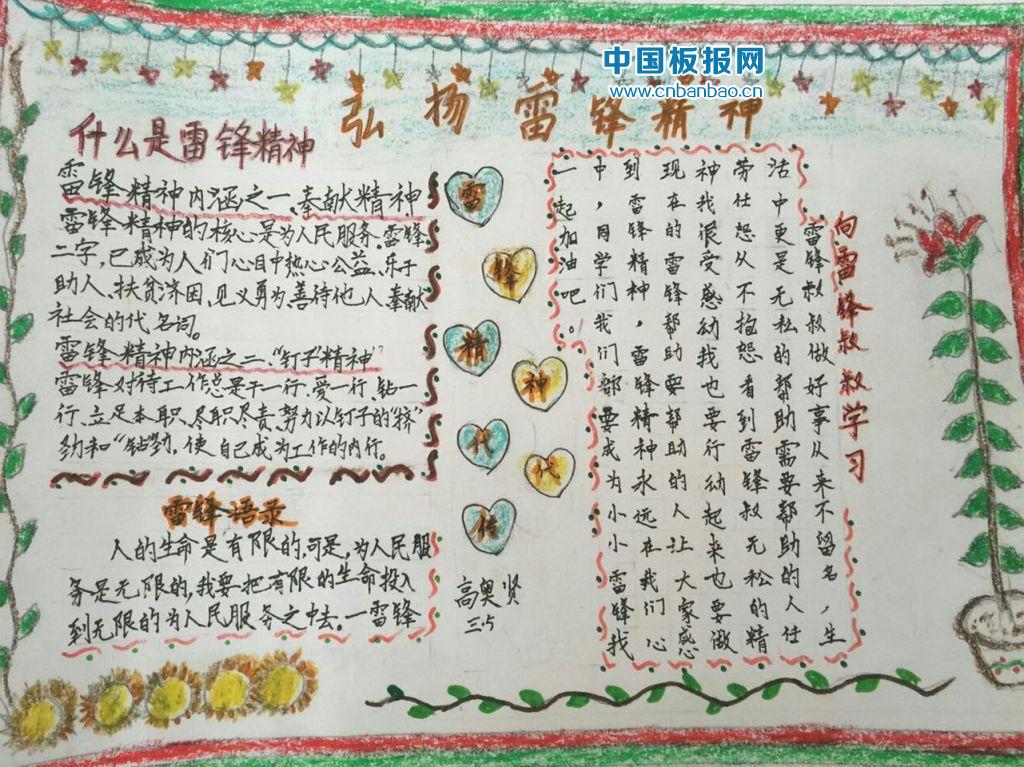 中国板报网
www.cnbanbao.cn
弘扬雷锋精神
什么是雷锋精神
雷锋精神内涵之一、奉献精神
雷锋精神的核心是为人民服务.雷锋
二字,已成为人们心目中热心公益、乐于
助人、扶贫济困、见义勇为、善待他人、奉献
社会的代名词。
雷锋精神内涵之二:“钉子精神”
雷锋对待工作总是干一行、爱一行、钻一
行、立足本职、尽职尽责、努力以钉子的“挤”
劲和“钻”劲,使自己成为工作的内行。
雷锋语录
人的生命是有限的,可是,为人民服
务是无限的,我要把有限的生命投入
到无限的为人民服务之中去。—雷锋
雷
锋
精
神
代
代
传
高奥贤
三.5
向雷锋叔叔学习
雷锋叔叔做好事从来不留名，生
活中更是无私的帮助需要帮助的人任
劳任怨从不抱怨看到雷锋叔无松的精
神我很受感动我也要行动起来也要做
现在的雷锋帮助要帮助的人让大家感
到雷锋精神，雷锋精神永远在我们心
中，同学们我们都要成为小小雷锋我
一起加油吧。